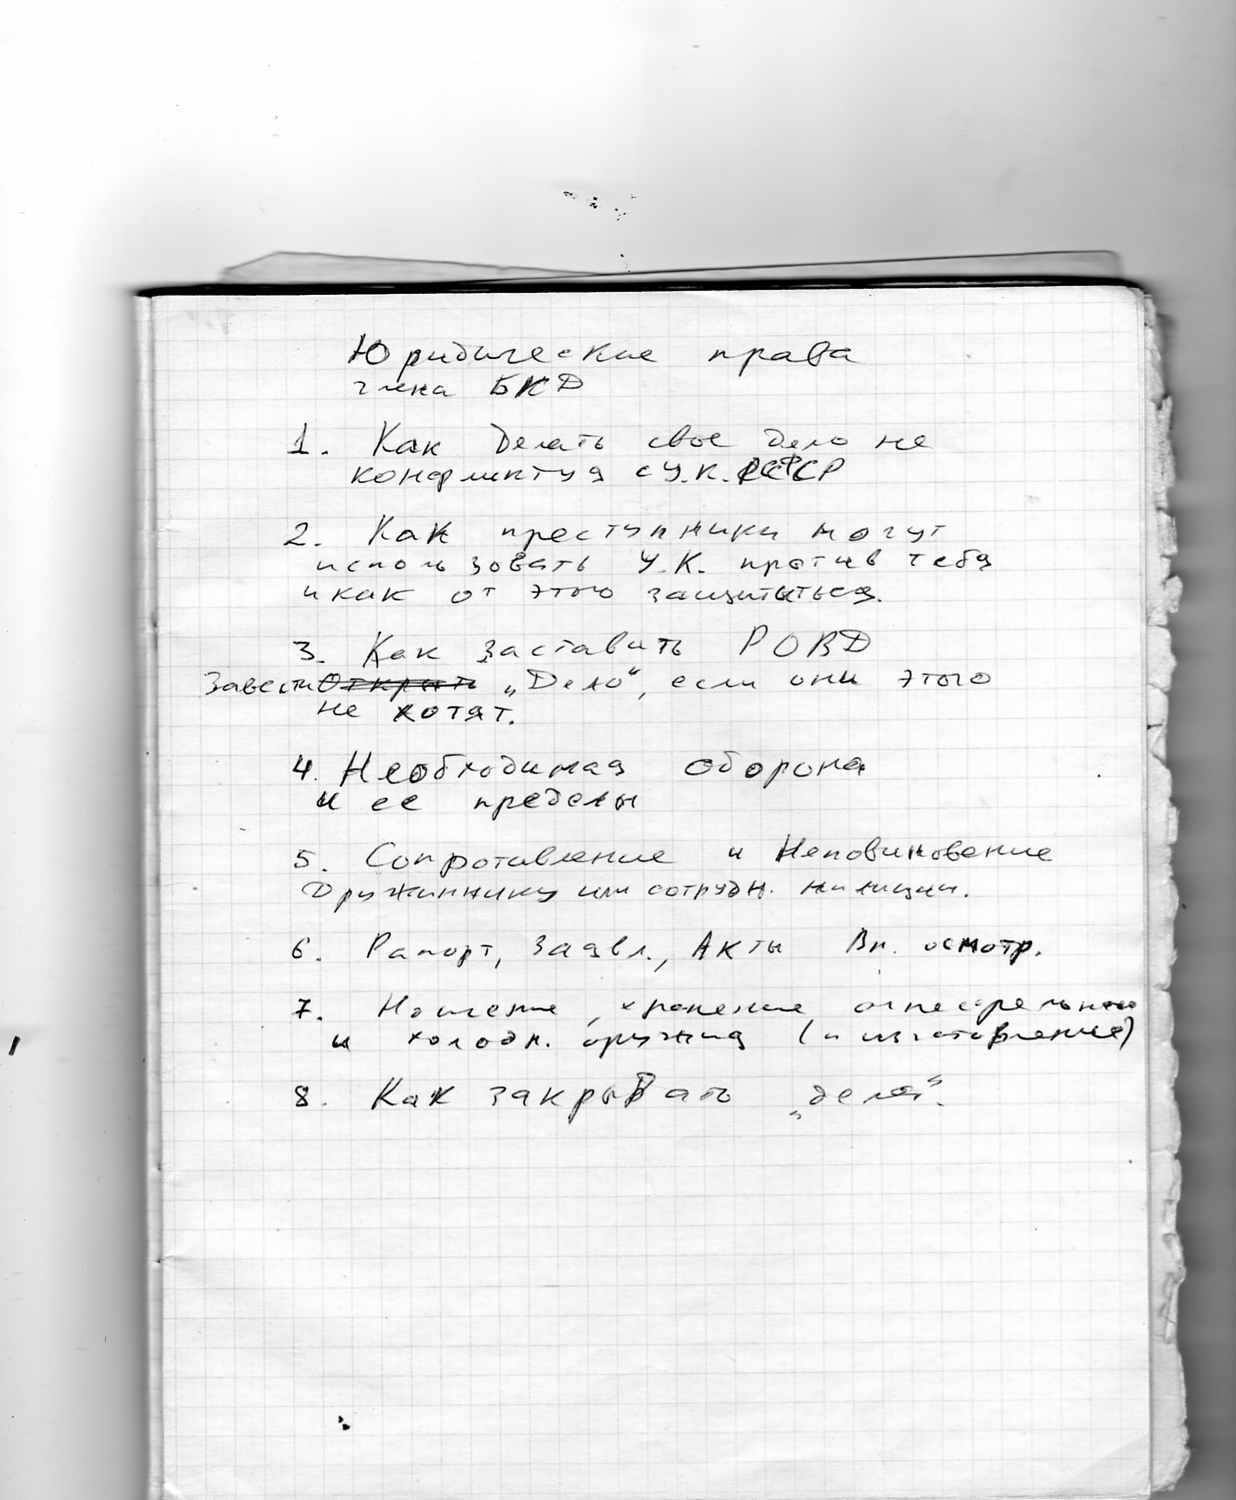 Юридические права
члена БКД
1. Как делать свое дело не
конфликтуя с У.К. РСФСР
2. Как преступники могут
использовать У.К. против тебя
и как от этого защититься.
3. Как заставить РОВД
Завести Открыть „Дело“, если они этого
не хотят.
4. Необходимая оборона
и ее пределы
5. Сопротивление и Неповиновение
Дружиннику или сотрудн. милиции.
6. Рапорт, Заявл., Акты Вн. осмотр.
7. Ношение, хранение огнестрельного
и холодн. оружия (и изготовление)
8. Как закрывать „дела“.